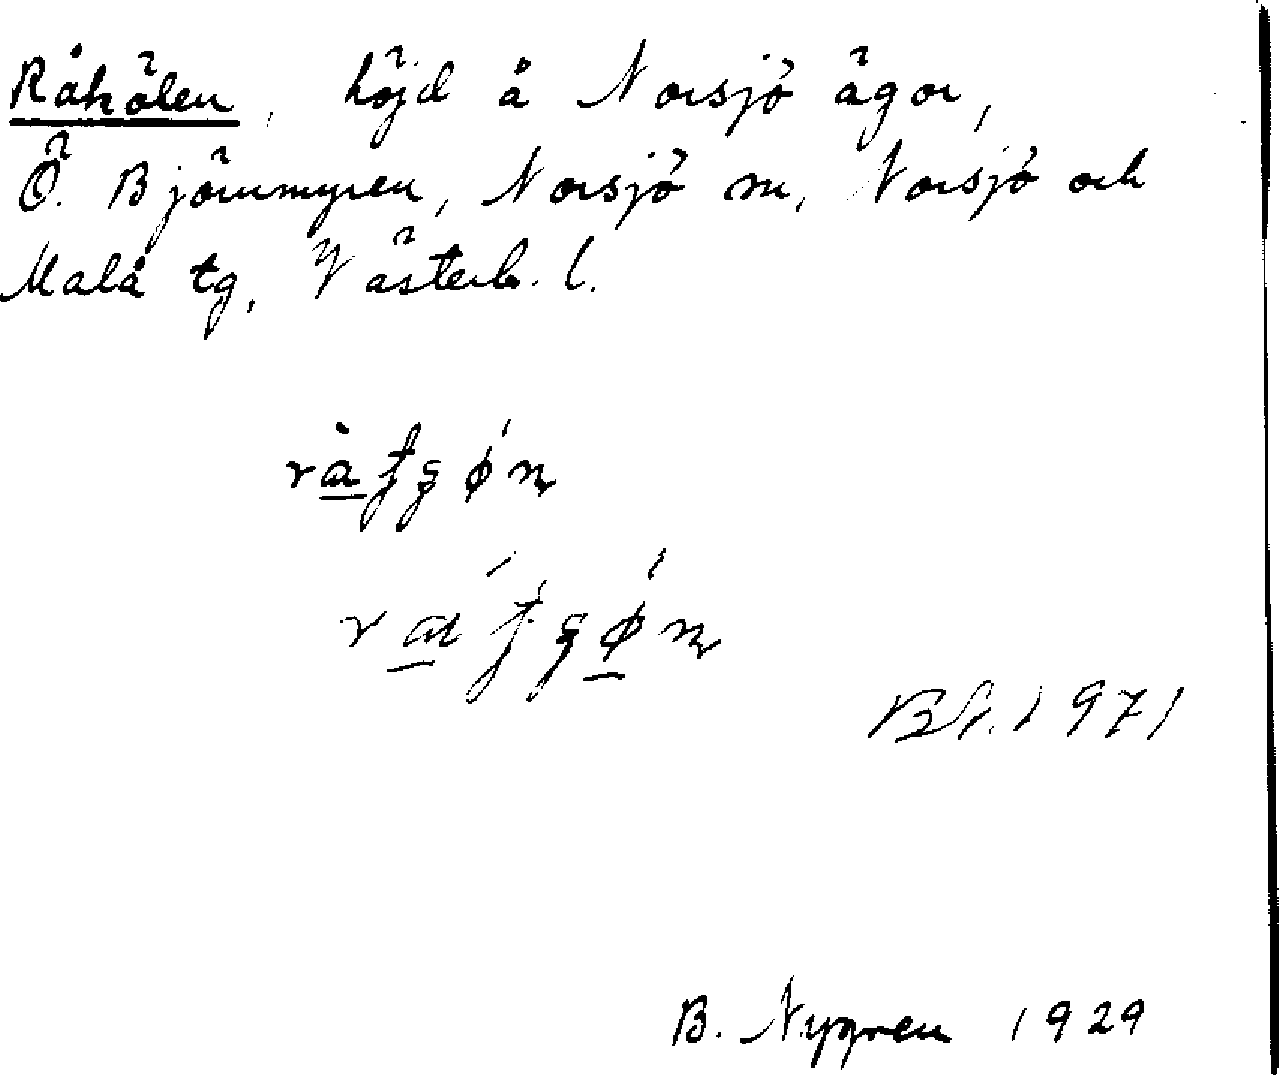 Råhölen, höjd å Norsjö ägor,
Ö. Björnmyren, Norsjö sn, Norsjö och
Malå tg, Västerb. l.
1971
B. Nygren 1929